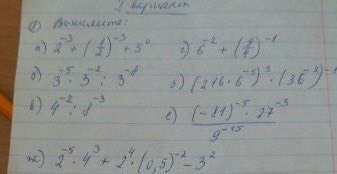 1 вариант
① Вычислите:
а) 2⁻³ + (½)⁻³ + 5⁰ г) 6⁻² + (6/7)⁻¹
б) 3⁻⁵ · 3⁻² : 3⁻⁸ д) (216 · 6⁻⁵)³ · (36⁻²)⁻¹
в) 4⁻² : 8⁻³ е) (-81)⁻⁵ · 27⁻³ / 9⁻¹⁵
ж) 2⁻⁵ · 4³ + 2⁴ · (0,5)⁻² - 3²